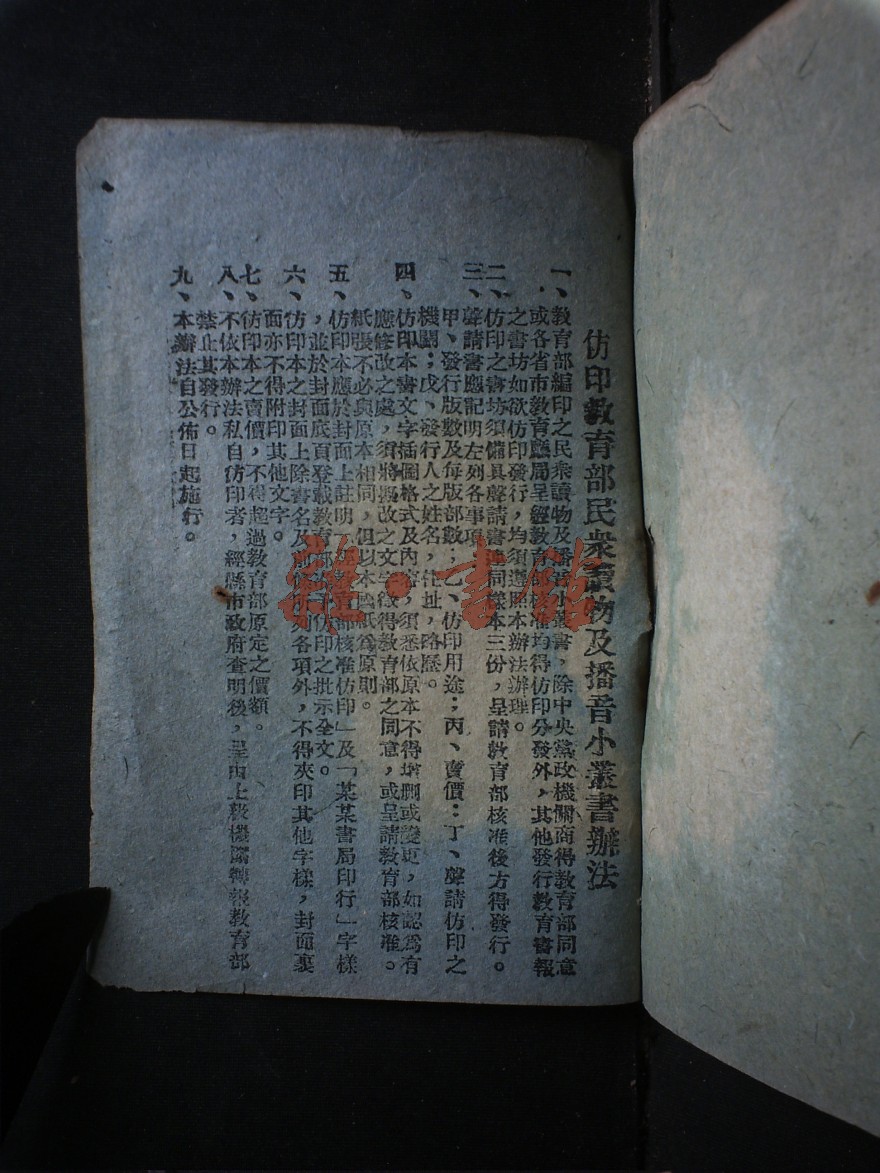 仿印教育部民衆讀物及播音小叢書辦法
一、教育部編印之民衆讀物及播音小叢書，除中央黨政機關商得教育部同意
或各省市教育廳局呈經教育部核准均得仿印分發外，其他發行教育書報
之書坊如欲仿印發行，均須遵照本辦法辦理。
二、仿印之書坊須備具聲請書連同樣本三份，呈請教育部核准後方得發行。
三、聲請書應記明左列各事項
甲、發行版數及每版部數；乙、仿印用途；丙、賣價；丁、聲請仿印之
機關；戊、發行人之姓名，住址，略歷。
四、仿印本書文字插圖格式及內容，須悉依原本不得增删或變更，如認爲有
應修改之處，須將擬改之文字徵得教育部之同意，或呈請教育部核准。
紙張不必與原本相同，但以本國紙爲原則。
五、仿印本應於封面上註明「教育部核准仿印」及「某某書局印行」字樣
，並於封面底頁登載教育部准予仿印之批示全文。
六、仿印本之封面上除書名及前條所列各項外，不得夾印其他字樣，封面裏
面亦不得附印其他文字。
七、仿印本之賣價，不得超過教育部原定之價額。
八、不依本辦法私自仿印者，經縣市政府查明後，呈由上級機關轉報教育部
禁止其發行。
九、本辦法自公佈日起施行。
雜·書館